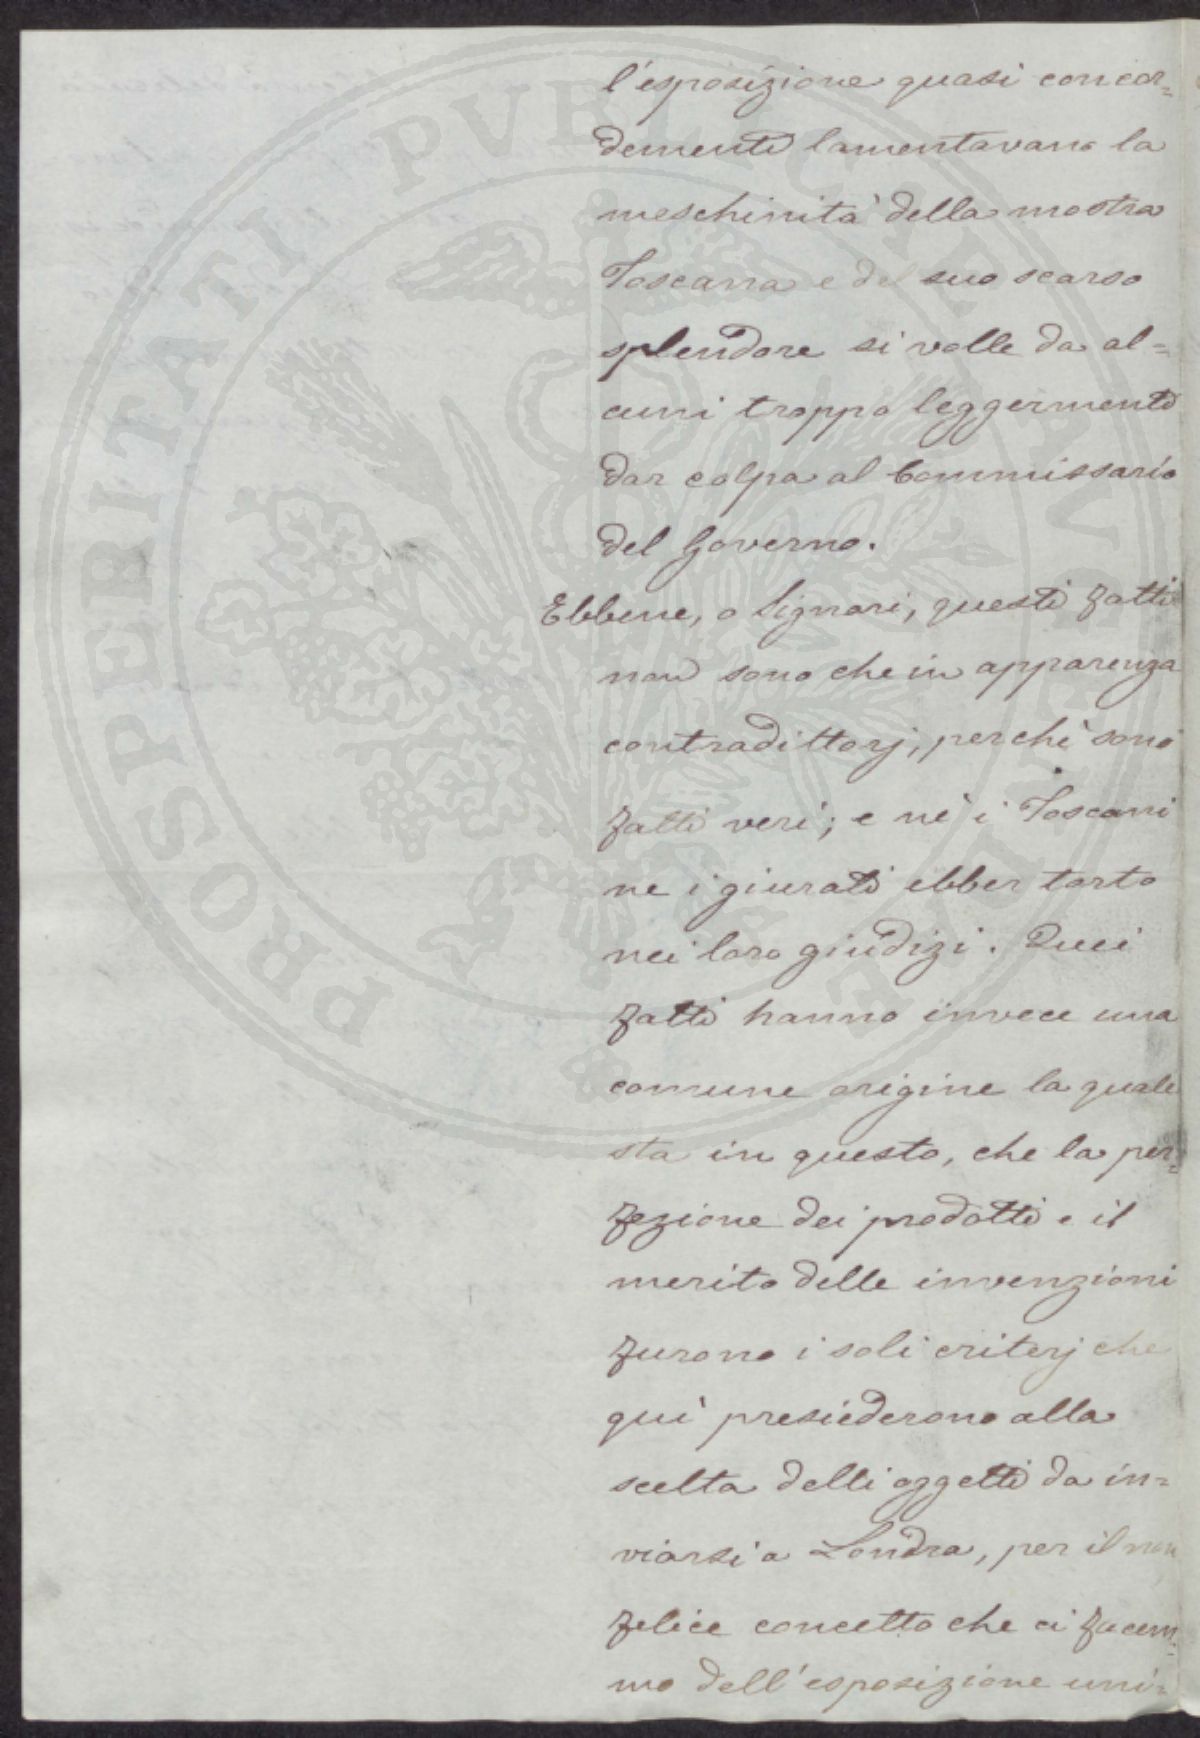 l'esposizione quasi concor=
demente lamentavano la
meschinità della mostra
Toscana e del suo scarso
splendore si volle da al=
cuni troppo leggermente
dar colpa al Commissario
del Governo.
Ebbene, o Signori, questi fatti
non sono che in apparenza
contradittorj, perchè sono
fatti veri; e nè i Toscani
ne i giurati ebber torto
nei loro giudizi. Quei
fatti hanno invece una
comune origine la quale
sta in questo, che la per=
fezione dei prodotti e il
merito delle invenzioni
furono i soli criterj che
quì presiederono alla
scelta delli oggetti da in=
viarsi a Londra, per il non
felice concetto che ci facem=
mo dell'esposizione uni=
PROSPERITATI PVBLICAE AVGENDAE